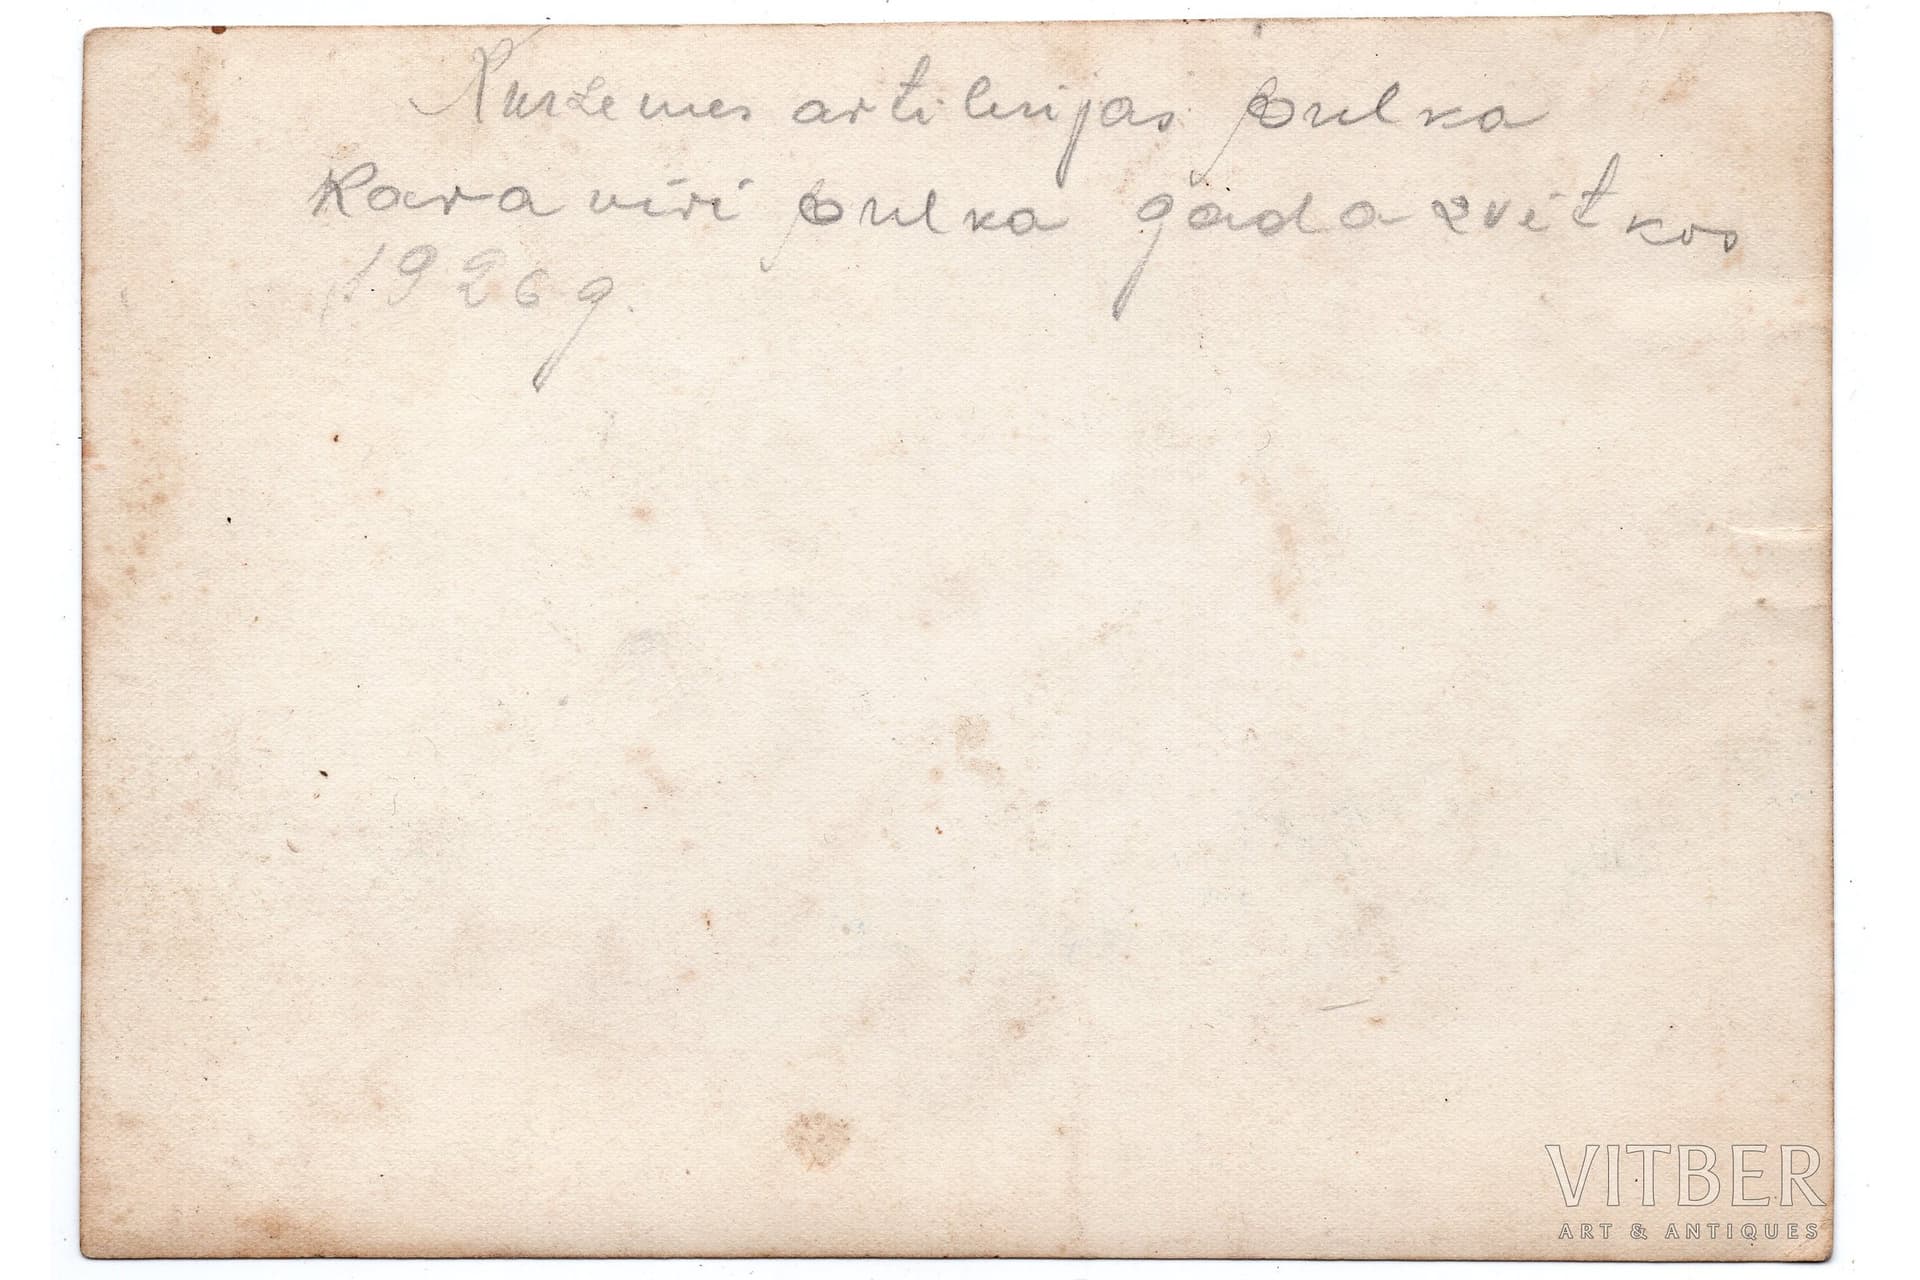 Kurzemes artilerijas pulka
Kara vīri pulka gada svētkos
1926 g.
VITBER
ART & ANTIQUES